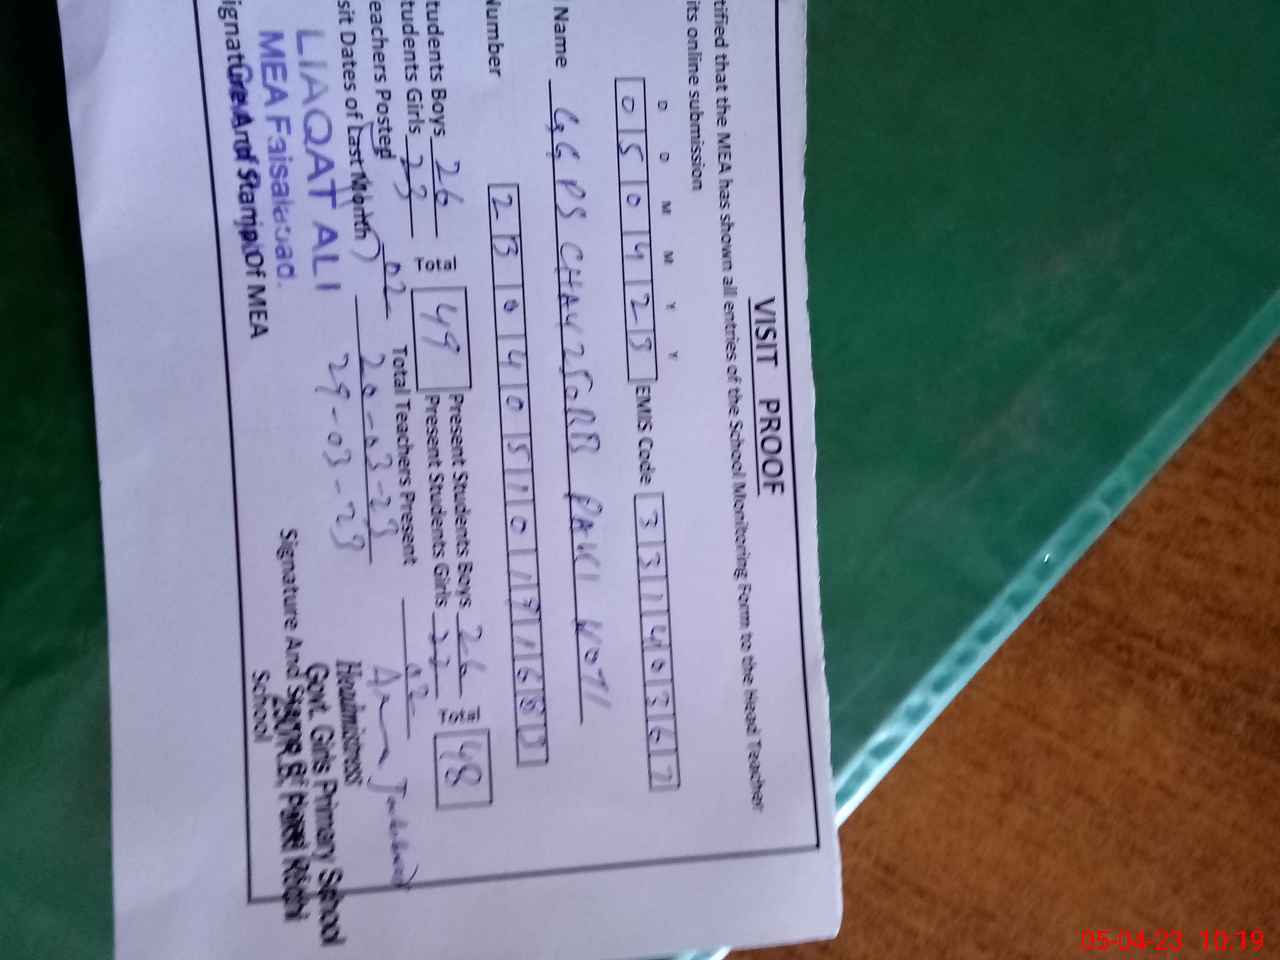 VISIT PROOF
tified that the MEA has shown all entries of the School Monitoring Form to the Head Teacher
its online submission
D D M M Y Y
0 5 0 4 2 3 EMIS Code 3 3 1 4 0 3 6 7
Name GGPS CHAK 250RB PAKI
Number 2 3 0 4 0 5 1 0 1 1
tudents Boys 26 49 Present Students Boys 26 48
tudents Girls 23 Present Students Girls 22
eachers Posted 02 Total Teachers Present 02
sit Dates of Last Month 20-03-23
29-03-23
LIAQAT ALI
MEA Faisalabad.
ignature And Stamp Of MEA
Headmistress
Govt. Girls Primary School
Signature And Stamp of
School
05-04-23 10:19